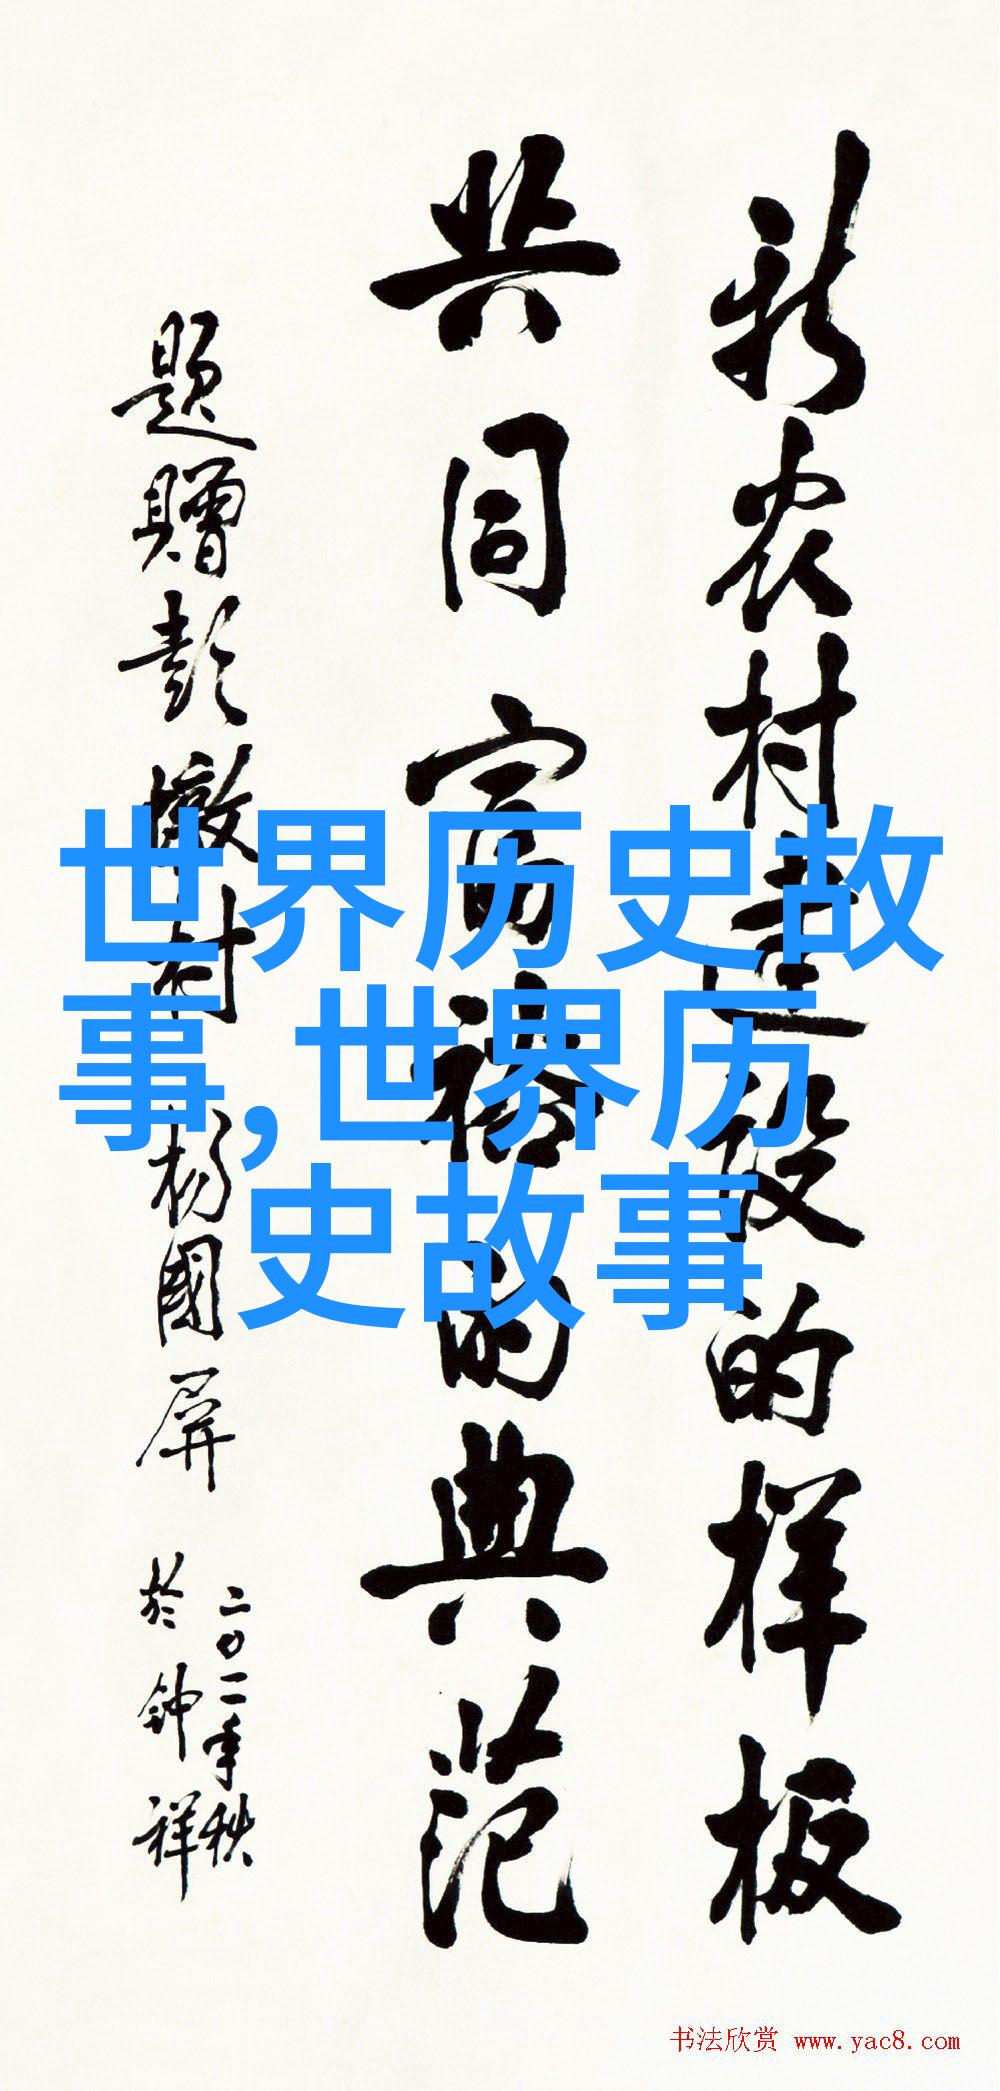 新农村建设的样板
共同富裕的典范
题赠彭墩村 杨國屏
二〇一一年秋
於钟祥
世界历史故
事,世界历
史故事
书法欣赏 www.yac8.com